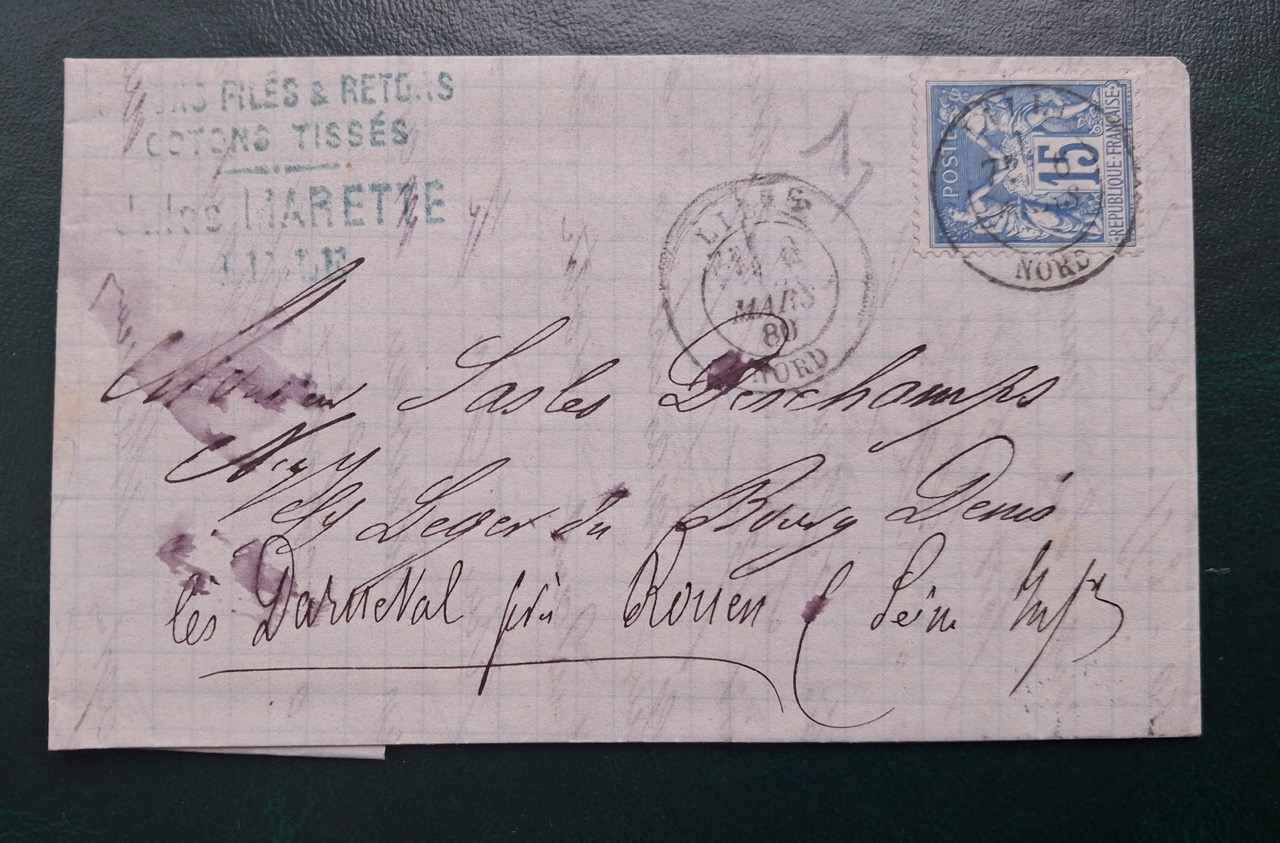 FILÉS & RETORS
COTONS TISSÉS
Jules MARETTE
LILLE
1
POSTES
15
REPUBLIQUE FRANÇAISE
LILLE
NORD
LILLE
MARS
80
NORD
Monsieur Sasles Deschamps
St Leger du Bourg Denis
lès Darnetal près Rouen (Seine Infre)